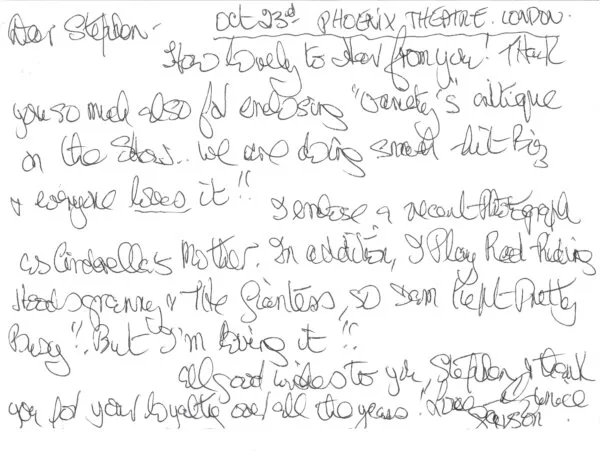 Dear Stephen - Oct 23rd PHOENIX THEATRE. LONDON.
How lovely to hear from you! Thank
you so much also for enclosing "Variety"s critique
on the Show.. We are doing smash hit biz
& everyone loves it!!
I enclose a recent photograph
as Cinderella's Mother. In addition, I Play Red Riding
Hoods granny & The Giantess, so I am Kept Pretty
Busy!! But I'm loving it!!
All good wishes to you, Stephen, & thank
you for your loyaltie over all the years! Love
Pearson